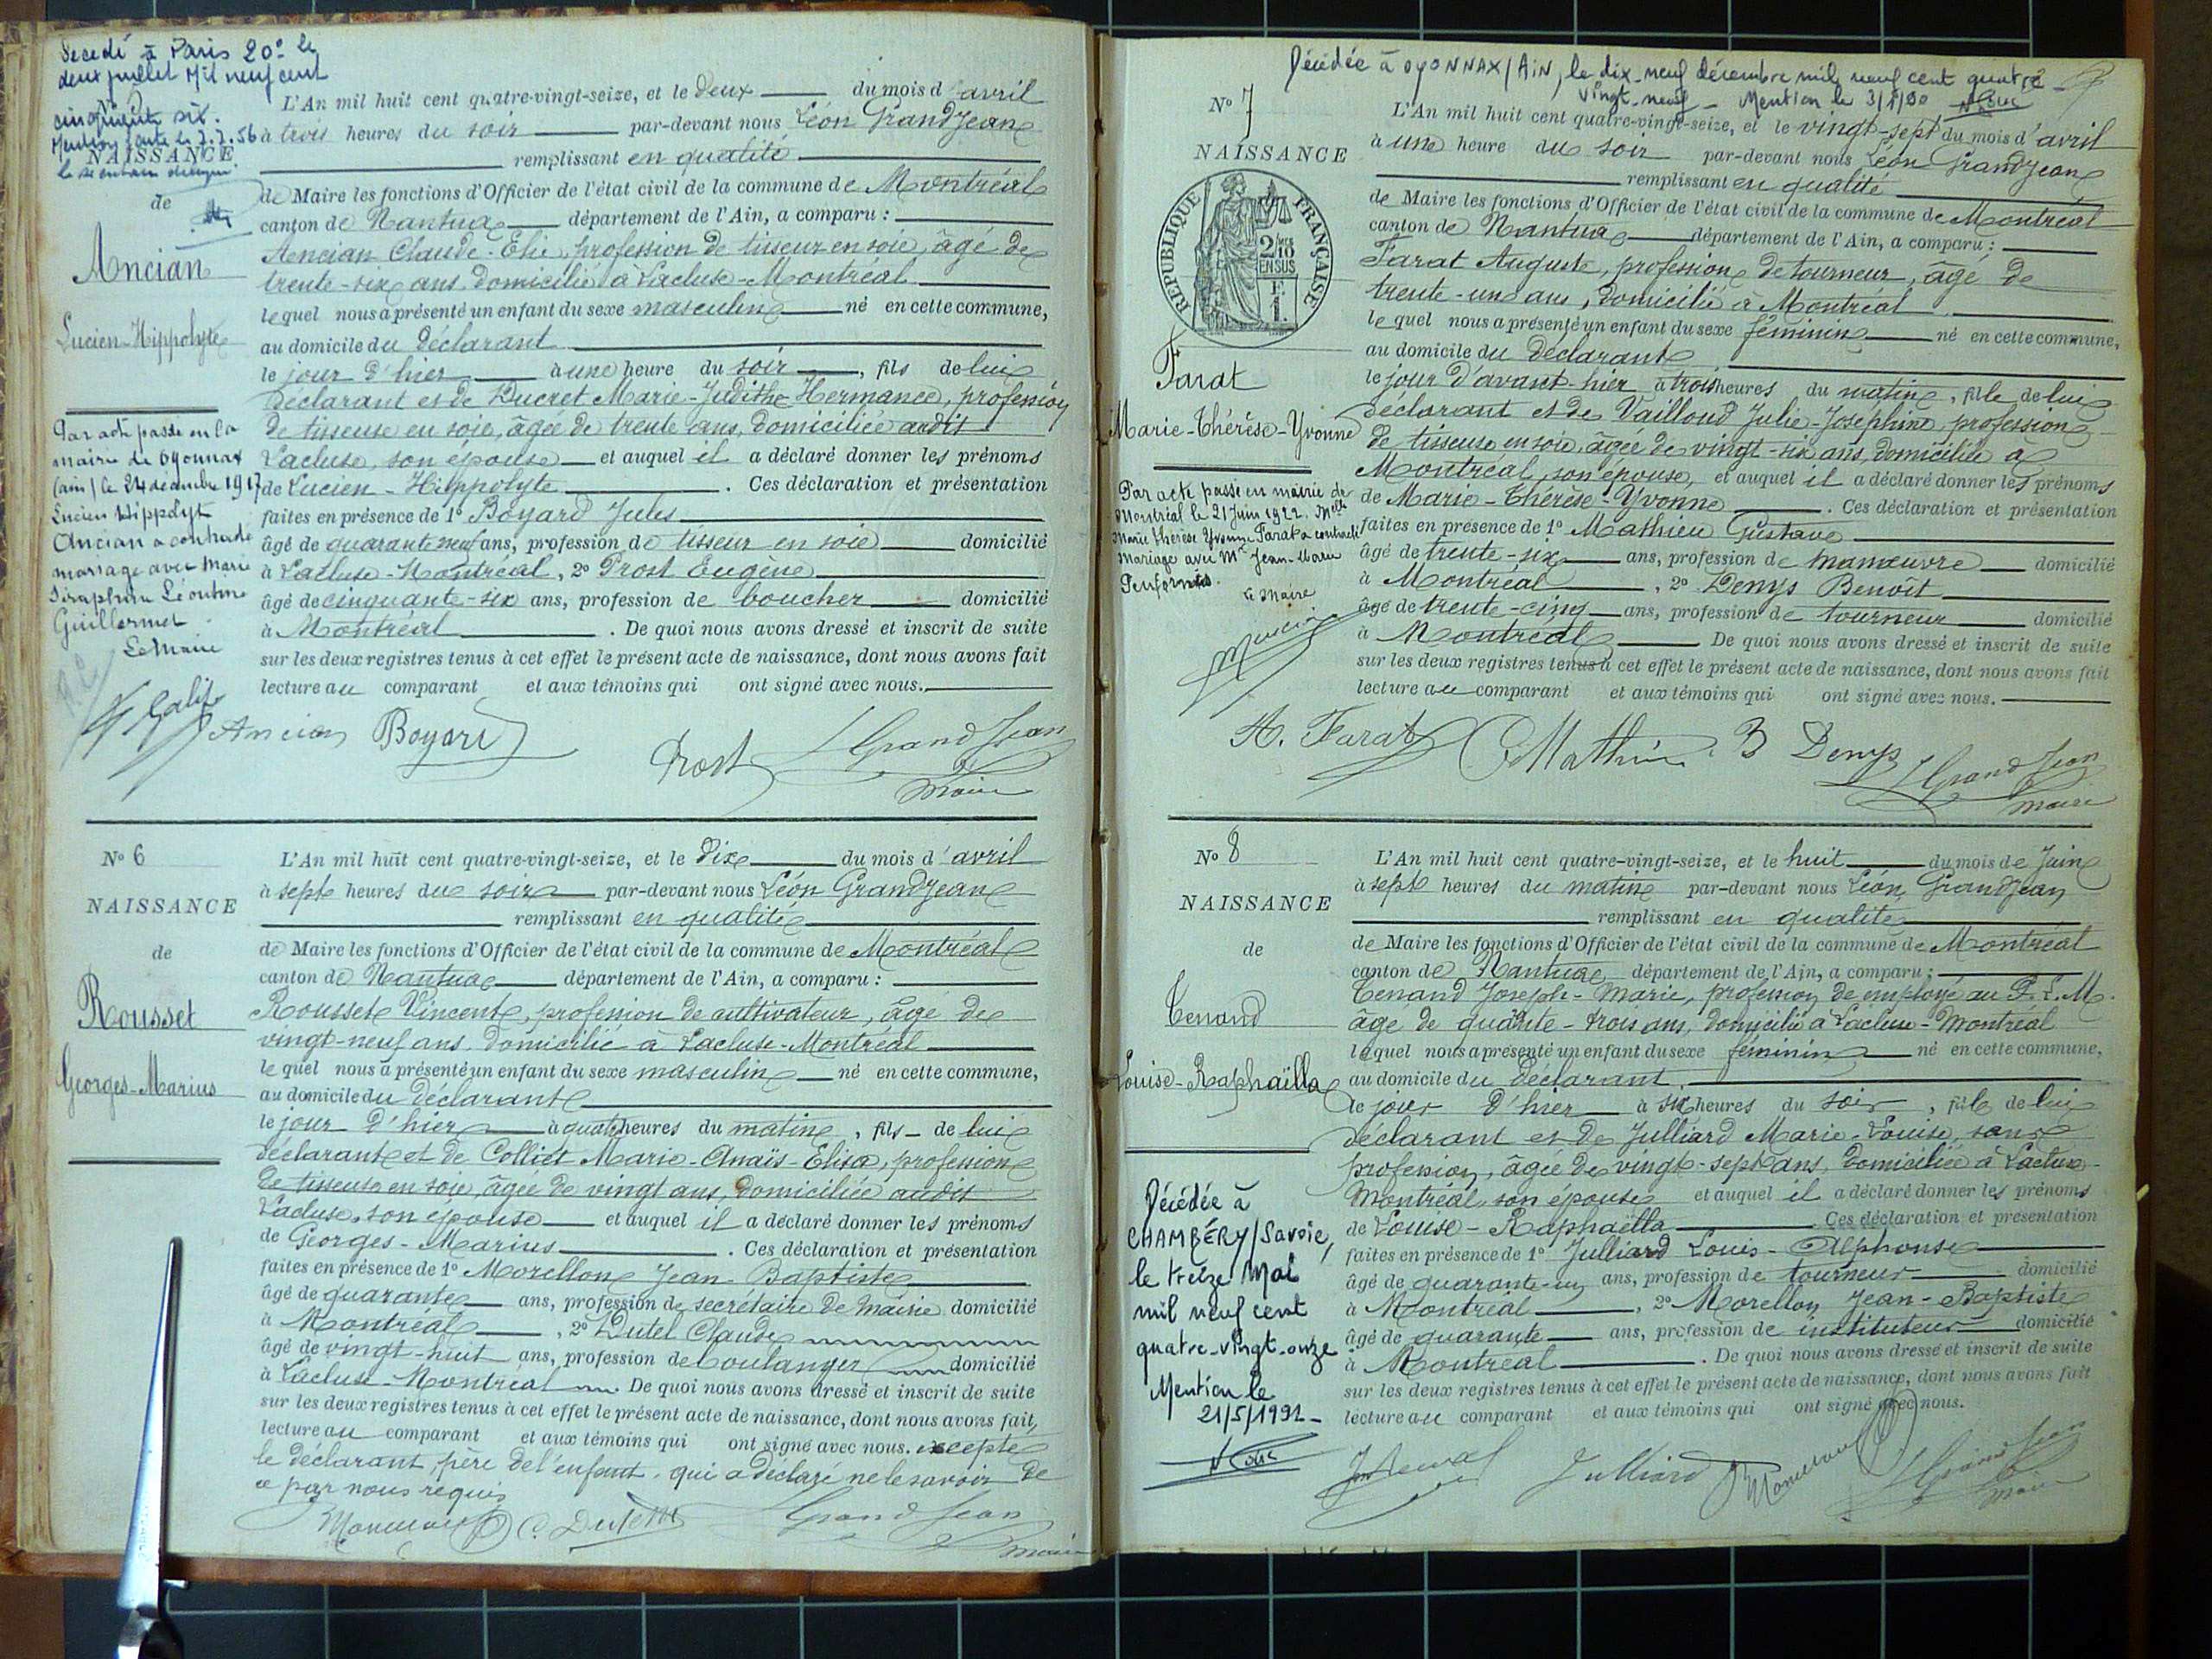 Décédé à Paris 20e le
deux juillet Mil neuf cent
cinquante six.
Mention faite le 7.7.56
NAISSANCE
de
Ancian
Lucien-Hippolyte
Par acte passé en la
mairie de Oyonnax
(ain) le 24 décembre 1917
Lucien Hippolyt
Ancian a contracté
mariage avec Marie
Séraphine Léontine
Guillermet
Le Maire
L'An mil huit cent quatre-vingt-seize, et le deux du mois d'avril
à trois heures du soir par-devant nous Léon Grandjean
remplissant en qualité
de Maire les fonctions d'Officier de l'état civil de la commune de Montréal
canton de Nantua département de l'Ain, a comparu :
Ancian Claude-Elie, profession de tisseur en soie, âgé de
trente-six ans, domicilié à Lacluse-Montréal
lequel nous a présenté un enfant du sexe masculin né en cette commune,
au domicile du déclarant
le jour d'hier à une heure du soir, fils de lui
déclarant et de Ducret Marie-Judithe-Hermance, profession
de tisseuse en soie, âgée de trente ans, domiciliée audit
Lacluse, son épouse et auquel il a déclaré donner les prénoms
de Lucien-Hippolyte. Ces déclaration et présentation
faites en présence de 1° Boyard Jules
âgé de quarante neuf ans, profession de tisseur en soie domicilié
à Lacluse-Montréal, 2° Prost Eugène
âgé de cinquante-six ans, profession de boucher domicilié
à Montréal. De quoi nous avons dressé et inscrit de suite
sur les deux registres tenus à cet effet le présent acte de naissance, dont nous avons fait
lecture au comparant et aux témoins qui ont signé avec nous.
Ancian Boyard Prost L Grand Jean
Maire
N° 6
NAISSANCE
de
Rousset
Georges-Marius
L'An mil huit cent quatre-vingt-seize, et le dix du mois d'avril
à sept heures du soir par-devant nous Léon Grandjean
remplissant en qualité
de Maire les fonctions d'Officier de l'état civil de la commune de Montréal
canton de Nantua département de l'Ain, a comparu :
Rousset Vincent, profession de cultivateur, âgé de
vingt-neuf ans, domicilié à Lacluse-Montréal
lequel nous a présenté un enfant du sexe masculin né en cette commune,
au domicile du déclarant
le jour d'hier à quatre heures du matin, fils de lui
déclarant et de Colliet Marie-Anaïs-Elisa, profession
de tisseuse en soie, âgée de vingt ans, domiciliée audit
Lacluse, son épouse et auquel il a déclaré donner les prénoms
de Georges-Marius. Ces déclaration et présentation
faites en présence de 1° Morellon Jean-Baptiste
âgé de quarante ans, profession de secrétaire de mairie domicilié
à Montréal, 2° Dutel Claude
âgé de vingt-huit ans, profession de boulanger domicilié
à Lacluse-Montréal. De quoi nous avons dressé et inscrit de suite
sur les deux registres tenus à cet effet le présent acte de naissance, dont nous avons fait,
lecture au comparant et aux témoins qui ont signé avec nous. excepté
le déclarant, père de l'enfant, qui a déclaré ne le savoir de
ce par nous requis
Morellon C. Dutel L Grand Jean
Maire
Décédée à OYONNAX/AiN, le dix-neuf décembre mil neuf cent quatre
vingt-neuf - Mention le 3/1/90
N° 7
NAISSANCE
REPUBLIQUE FRANÇAISE
2/10 EN SUS
1
Farat
Marie-Thérèse-Yvonne
Par acte passé en mairie de
Montréal le 21 Juin 1922. Melle
Marie Thérèse Yvonne Farat a contracté
Mariage avec Mr Jean-Marie
Le Maire
L'An mil huit cent quatre-vingt-seize, et le vingt-sept du mois d'avril
à une heure du soir par-devant nous Léon Grandjean
remplissant en qualité
de Maire les fonctions d'Officier de l'état civil de la commune de Montréal
canton de Nantua département de l'Ain, a comparu :
Farat Auguste, profession de tourneur, âgé de
trente-un ans, domicilié à Montréal
lequel nous a présenté un enfant du sexe féminin né en cette commune,
au domicile du déclarant
le jour d'avant-hier à trois heures du matin, fille de lui
déclarant et de Vailloud Julie-Joséphine, profession
de tisseuse en soie, âgée de vingt-six ans, domiciliée à
Montréal, son épouse, et auquel il a déclaré donner les prénoms
de Marie-Thérèse-Yvonne. Ces déclaration et présentation
faites en présence de 1° Mathieu Gustave
âgé de trente-six ans, profession de manœuvre domicilié
à Montréal, 2° Denys Benoît
âgé de trente-cinq ans, profession de tourneur domicilié
à Montréal De quoi nous avons dressé et inscrit de suite
sur les deux registres tenus à cet effet le présent acte de naissance, dont nous avons fait
lecture au comparant et aux témoins qui ont signé avec nous.
A. Farat G Mathieu B Denys L Grand Jean
Maire
N° 8
NAISSANCE
de
Tenand
Louise-Raphaëlla
Décédée à
CHAMBÉRY/Savoie,
le treize Mai
mil neuf cent
quatre-vingt-onze
Mention le
21/5/1991-
L'An mil huit cent quatre-vingt-seize, et le huit du mois de Juin
à sept heures du matin par-devant nous Léon Grandjean
remplissant en qualité
de Maire les fonctions d'Officier de l'état civil de la commune de Montréal
canton de Nantua département de l'Ain, a comparu :
Tenand Joseph-Marie, profession de employé au P.L.M.
âgé de quarante-trois ans, domicilié à Lacluse-Montréal
lequel nous a présenté un enfant du sexe féminin né en cette commune,
au domicile du déclarant.
le jour d'hier à six heures du soir, fille de lui
déclarant et de Julliard Marie-Louise, sans
profession, âgée de vingt-sept ans, domiciliée à Lacluse-
Montréal, son épouse et auquel il a déclaré donner les prénoms
de Louise-Raphaëlla Ces déclaration et présentation
faites en présence de 1° Julliard Louis-Alphonse
âgé de quarante-un ans, profession de tourneur domicilié
à Montréal, 2° Morellon Jean-Baptiste
âgé de quarante ans, profession de instituteur domicilié
à Montréal. De quoi nous avons dressé et inscrit de suite
sur les deux registres tenus à cet effet le présent acte de naissance, dont nous avons fait
lecture au comparant et aux témoins qui ont signé avec nous.
Tenand Julliard Morellon L Grand Jean
Maire